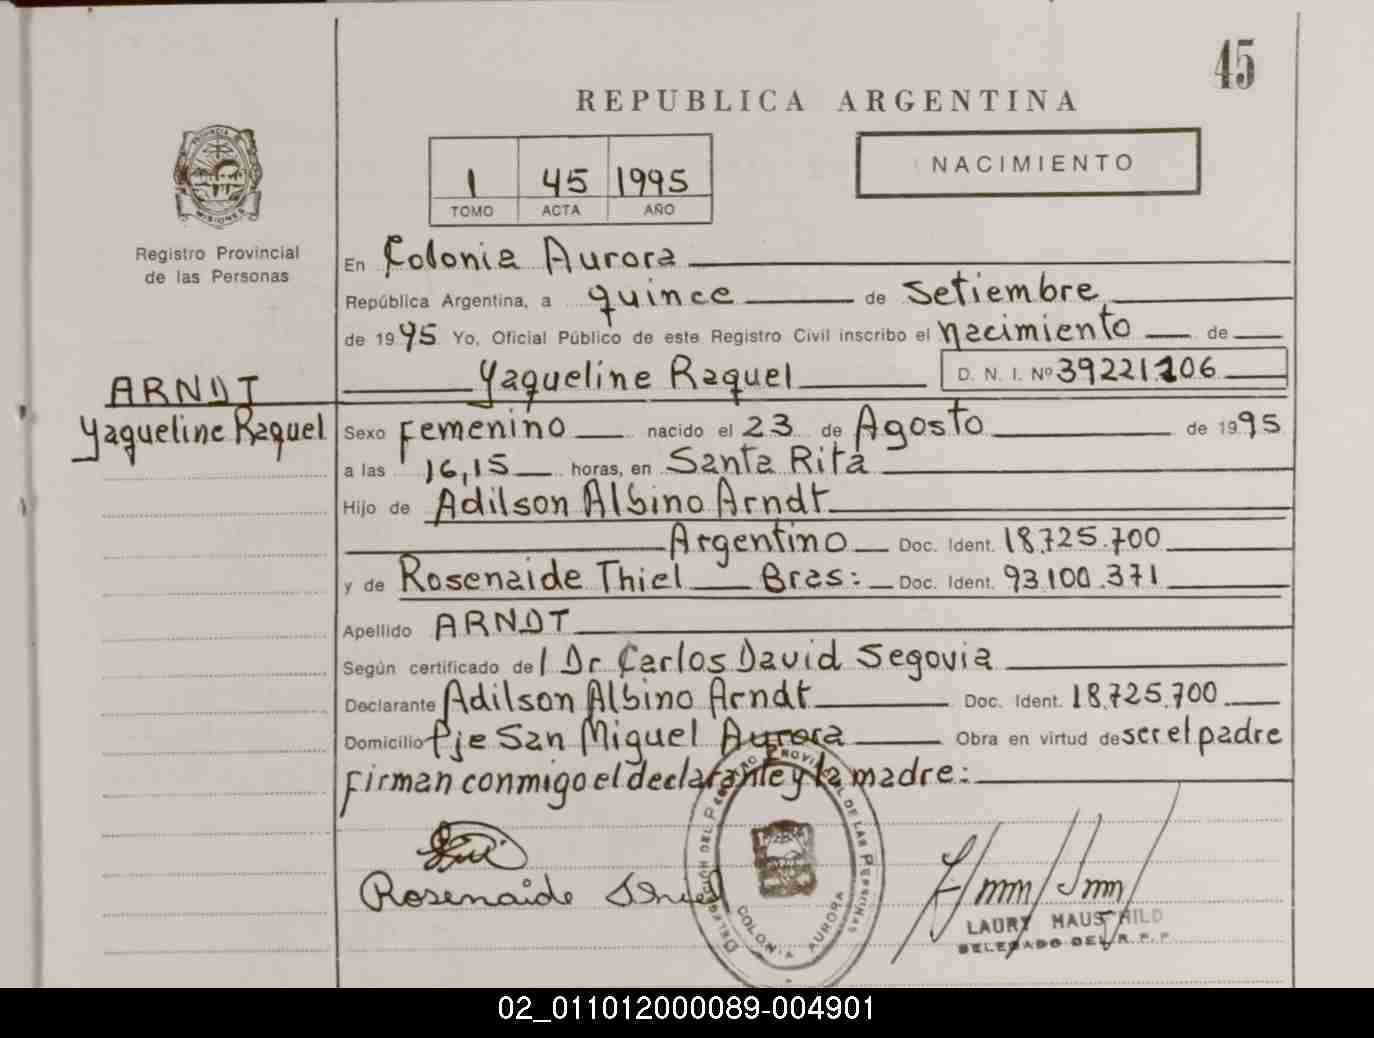 45
REPUBLICA ARGENTINA
PROVINCIA DE
MISIONES
1 45 1995
TOMO ACTA AÑO
NACIMIENTO
Registro Provincial
de las Personas
En Colonia Aurora
República Argentina, a quince de Setiembre
de 1995 Yo, Oficial Público de este Registro Civil inscribo el nacimiento de
Yaqueline Raquel D. N. I. Nº 39221.206
ARNDT
Yaqueline Raquel
Sexo Femenino nacido el 23 de Agosto de 1995
a las 16,15 horas, en Santa Rita
Hijo de Adilson Albino Arndt
Argentino Doc. Ident. 18.725.700
y de Rosenaide Thiel Bras: Doc. Ident. 93.100.371
Apellido ARNDT
Según certificado del Dr Carlos David Segovia
Declarante Adilson Albino Arndt Doc. Ident. 18.725.700
Domicilio Pje San Miguel Aurora Obra en virtud de ser el padre
firman conmigo el declarante y la madre:
Rosenaide Thiel
DELEGACIÓN DEL REGISTRO PROVINCIAL DE LAS PERSONAS
COLONIA AURORA
LAURY HAUSCHILD
DELEGADO DEL R. P. P.
02_011012000089-004901